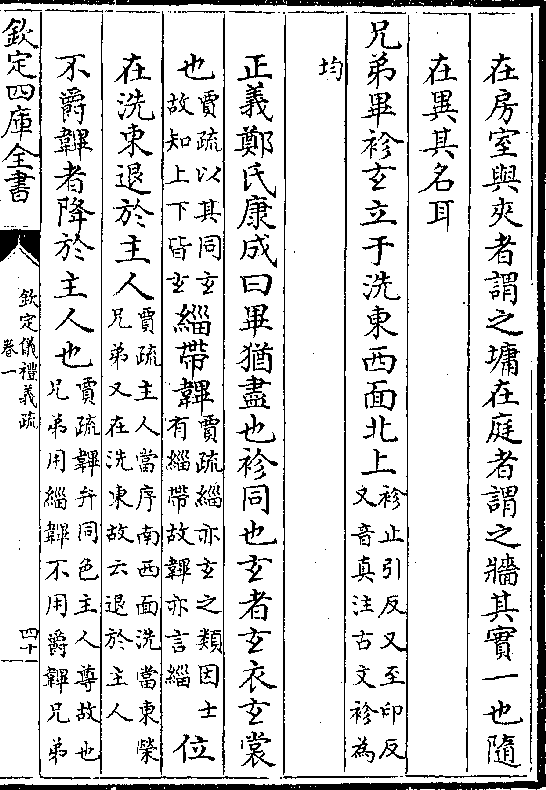 在房室與夾者謂之墉在庭者謂之牆其實一也隨
在異其名耳
兄弟畢袗玄立于洗東西面北上袗止引反又至印反
又音真注古文袗為
均
正義鄭氏康成曰畢猶盡也袗同也玄者玄衣玄裳
也賈疏以其同玄
故知上下皆玄緇帶韠賈疏緇亦玄之類因士
有緇帶故韠亦言緇位
在洗東退於主人賈疏主人當序南西面洗當東榮
兄弟又在洗東故云退於主人
不爵韠者降於主人也賈疏韠弁同色主人尊故也
兄弟用緇韠不用爵韠兄弟
欽定四庫全書
欽定儀禮義疏
卷一
四十一